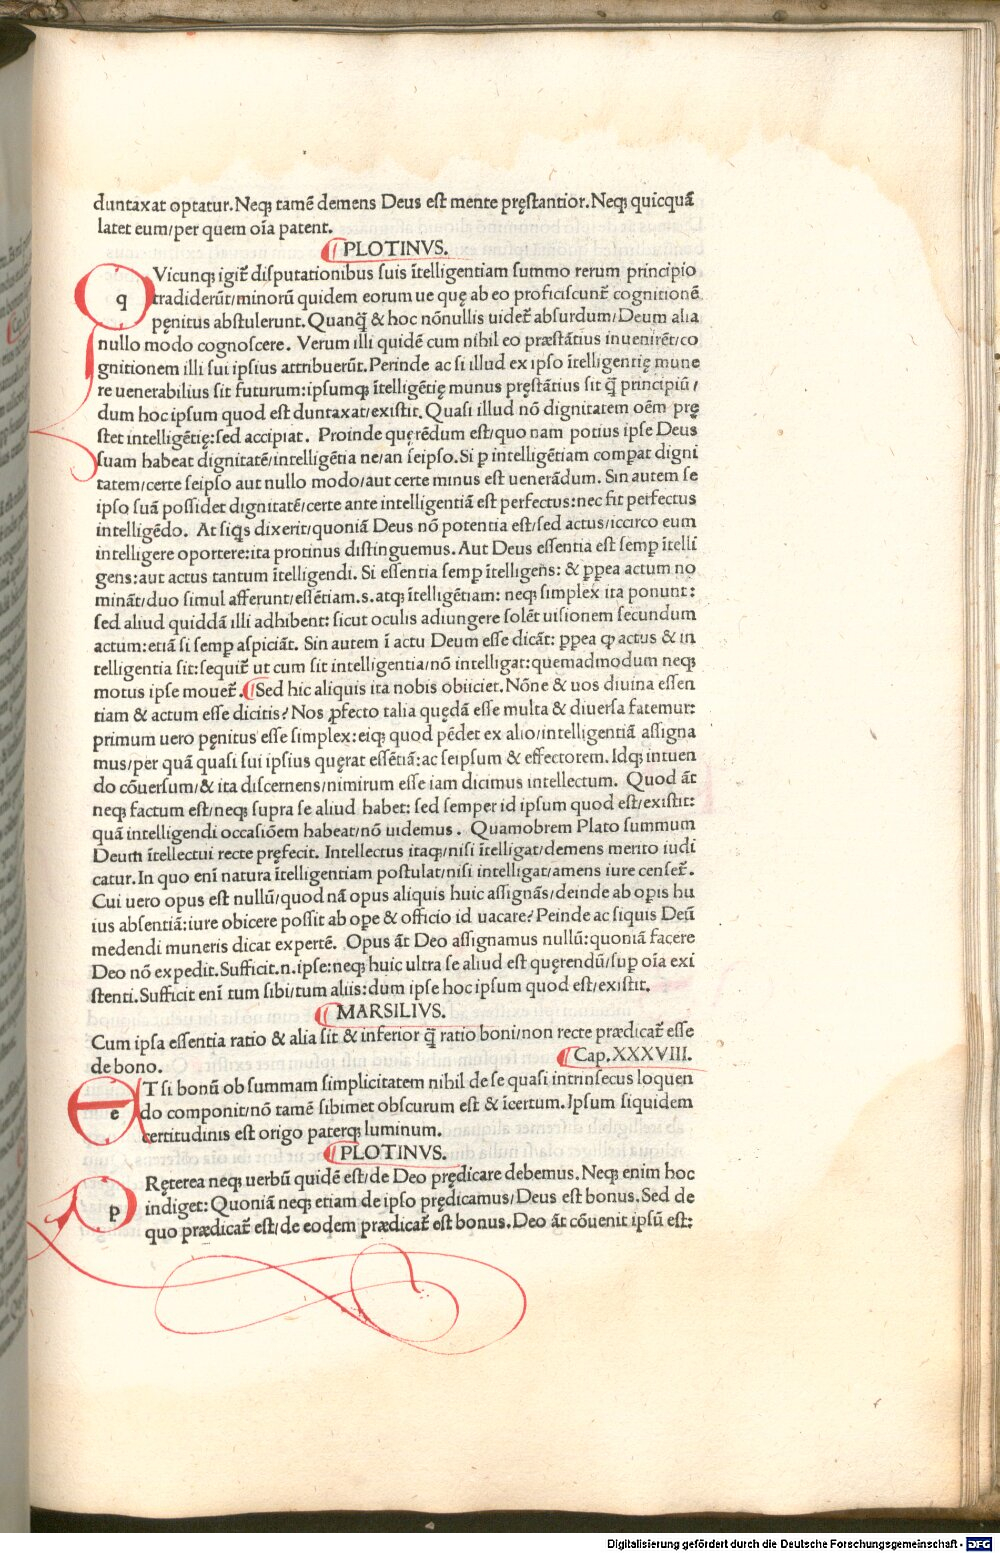 duntaxat optatur. Neq; tamē demens Deus est mente pręstantior. Neq; quicquā
latet eum/per quem oīa patent.
PLOTINVS.
q Vicunq; igit̄ disputationibus suis ītelligentiam summo rerum principio
tradiderūt/minorū quidem eorum ue quę ab eo proficiscunt̄ cognitionē
pęnitus abstulerunt. Quanq̄ & hoc nōnullis uidet̄ absurdum/Deum alia
nullo modo cognoscere. Verum illi quidē cum nihil eo præstātius inuenirēt/co
gnitionem illi sui ipsius attribuerūt. Perinde ac si illud ex ipso ītelligentię mune
re uenerabilius sit futurum: ipsumq; ītelligētię munus pręstātius sit q̄ principiū/
dum hoc ipsum quod est duntaxat/existit. Quasi illud nō dignitatem oēm prę
stet intelligētię: sed accipiat. Proinde quęrēdum est/quo nam potius ipse Deus
suam habeat dignitatē/intelligētia ne/an seipso. Si ꝑ intelligētiam comparat digni
tatem/certe seipso aut nullo modo/aut certe minus est uenerādum. Sin autem se
ipso suā possidet dignitatē/certe ante intelligentiā est perfectus: nec fit perfectus
intelligēdo. At siq̄s dixerit/quoniā Deus nō potentia est/sed actus/iccirco eum
intelligere oportere: ita protinus distinguemus. Aut Deus essentia est semꝑ ītelli
gens: aut actus tantum ītelligendi. Si essentia semꝑ ītelligens: & ꝓpea actum no
mināt/duo simul afferunt/essētiam .s. atq; ītelligētiam: neq; simplex ita ponunt:
sed aliud quiddā illi adhibent: sicut oculis adiungere solēt uisionem secundum
actum: etiā si semꝑ aspiciāt. Sin autem ī actu Deum esse dicāt: ꝓpea ꝙ actus & in
telligentia sit: sequit̄ ut cum sit intelligentia/nō intelligat: quemadmodum neq;
motus ipse mouet̄. Sed hic aliquis ita nobis obiiciet. Nōne & uos diuina essen
tiam & actum esse dicitis? Nos ꝓfecto talia quędā esse multa & diuersa fatemur:
primum uero pęnitus esse simplex: eiq; quod pēdet ex alio/intelligentiā assigna
mus/per quā quasi sui ipsius quęrat essētiā: ac seipsum & effectorem. Idq; intuen
do cōuersum/& ita discernens/nimirum esse iam dicimus intellectum. Quod āt
neq; factum est/neq; supra se aliud habet: sed semper id ipsum quod est/existit:
quā intelligendi occasiōem habeat/nō uidemus. Quamobrem Plato summum
Deum ītellectui recte pręfecit. Intellectus itaq;/nisi ītelligat/demens merito iudi
catur. In quo enī natura ītelligentiam postulat/nisi intelligat/amens iure censet̄.
Cui uero opus est nullū/quod nā opus aliquis huic assignās/deinde ab oꝑis hu
ius absentiā: iure obicere possit ab oꝑe & officio id uacare? Peinde ac siquis Deū
medendi muneris dicat expertē. Opus āt Deo assignamus nullū: quoniā facere
Deo nō expedit. Sufficit .n. ipse: neq; huic ultra se aliud est quęrendū/suꝑ oīa exi
stenti. Sufficit enī tum sibi/tum aliis: dum ipse hoc ipsum quod est/existit.
MARSILIVS.
Cum ipsa essentia ratio & alia sit & inferior q̄ ratio boni/non recte prædicat̄ esse
de bono.
Cap. XXXVIII.
e T si bonū ob summam simplicitatem nihil de se quasi intrinsecus loquen
do componit/nō tamē sibimet obscurum est & īcertum. Ipsum siquidem
certitudinis est origo paterq; luminum.
PLOTINVS.
p Ręterea neq; uerbū quidē est/de Deo prędicare debemus. Neq; enim hoc
indiget: Quoniā neq; etiam de ipso prędicamus/Deus est bonus. Sed de
quo prædicat̄ est/de eodem prædicat̄ est bonus. Deo āt cōuenit ipsū est:
Digitalisierung gefördert durch die Deutsche Forschungsgemeinschaft - DFG